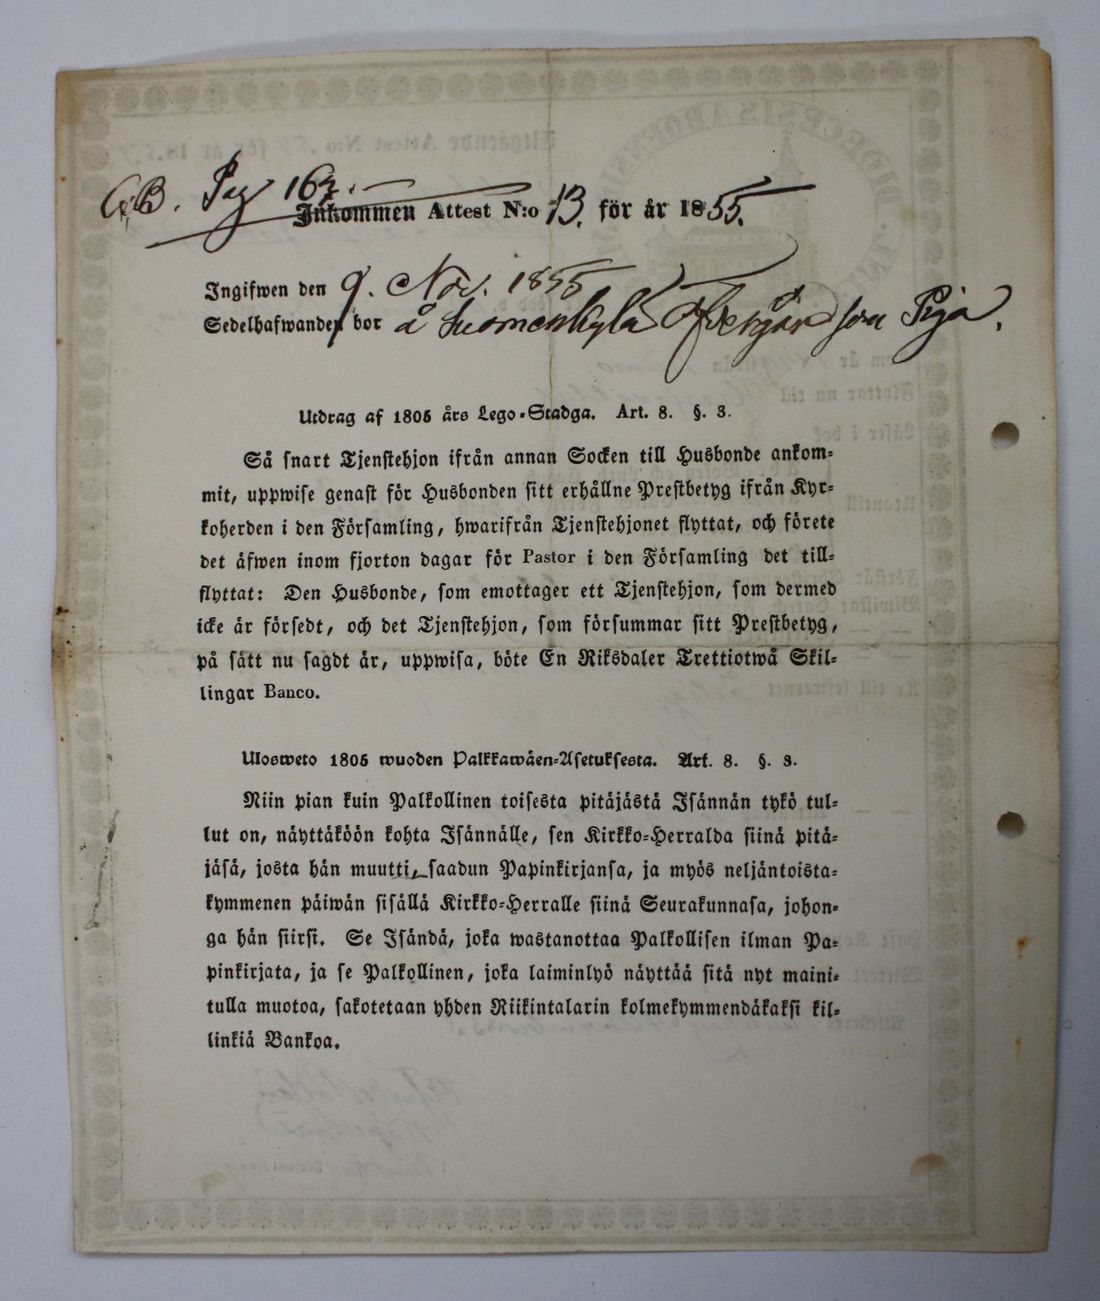 CB. Pag 163.
Inkommen Attest N:o 13. för år 1855.
Ingifwen den 9. Nov. 1855
Sedelhafwanden bor å Suomenkylä Öfvergård som Piga.
Utdrag af 1805 års Lego-Stadga. Art. 8. §. 3.
Så snart Tjenstehjon ifrån annan Socken till Husbonde ankom-
mit, uppwise genast för Husbonden sitt erhållne Prestbetyg ifrån Kyr-
koherden i den Församling, hwarifrån Tjenstehjonet flyttat, och förete
det äfwen inom fjorton dagar för Pastor i den Församling det till-
flyttat: Den Husbonde, som emottager ett Tjenstehjon, som dermed
icke är försedt, och det Tjenstehjon, som försummar sitt Prestbetyg,
på sätt nu sagdt är, uppwisa, böte En Riksdaler Trettiotwå Skil-
lingar Banco.
Ulosweto 1805 wuoden Palkkawäen-Asetuksesta. Art. 8. §. 3.
Niin pian kuin Palkollinen toisesta pitäjästä Isännän tykö tul-
lut on, näyttäköön kohta Isännälle, sen Kirkko-Herralda siinä pitä-
jäsä, josta hän muutti, saadun Papinkirjansa, ja myös neljäntoista-
kymmenen päiwän sisällä Kirkko-Herralle siinä Seurakunnasa, johon-
ga hän siirsi. Se Isändä, joka wastanottaa Palkollisen ilman Pa-
pinkirjata, ja se Palkollinen, joka laiminlyö näyttää sitä nyt maini-
tulla muotoa, sakotetaan yhden Riikintalarin kolmekymmendäkaksi kil-
linkiä Bankoa.